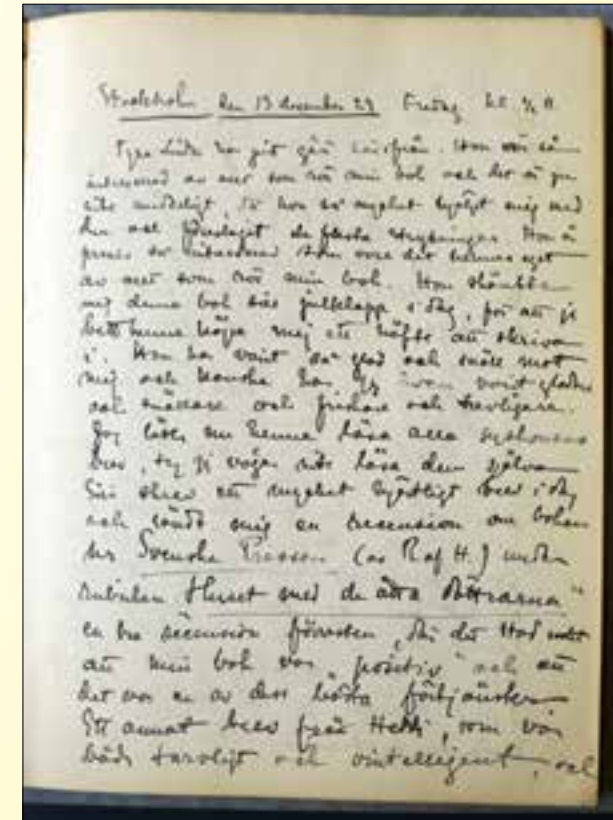 Stockholm den 13 december 29 Fredag kl. ½
har gått härifrån. Hon var så
intresserad av allt som rör min bok och det är
hon så mycket hjälpt mig med
den och de flesta strykningar. Hon är
precis så intresserad som vore det hennes eget
av allt som rör min bok. Hon skänkte
mig denna bok till julklapp i dag, för att jag
bett henne köpa mig ett häfte att skriva
i. Hon har varit så glad och snäll mot
mig och kanske har jag även varit gladare
och snällare och friskare och trevligare.
Jag låter nu henne läsa alla syskonens
brev, ty jag vågar inte läsa dem själva
skrev ett mycket hjärtligt brev i dag
och sände mig en recension om boken
ur Svenska Pressen (av H.) under
rubriken Huset med de åtta döttrarna"
en bra recension förresten, där det stod
att min bok var "positiv" och att
det var en av dess bästa förtjänster
Ett annat brev från Hetti, som var
både tarvligt och ointelligent, och